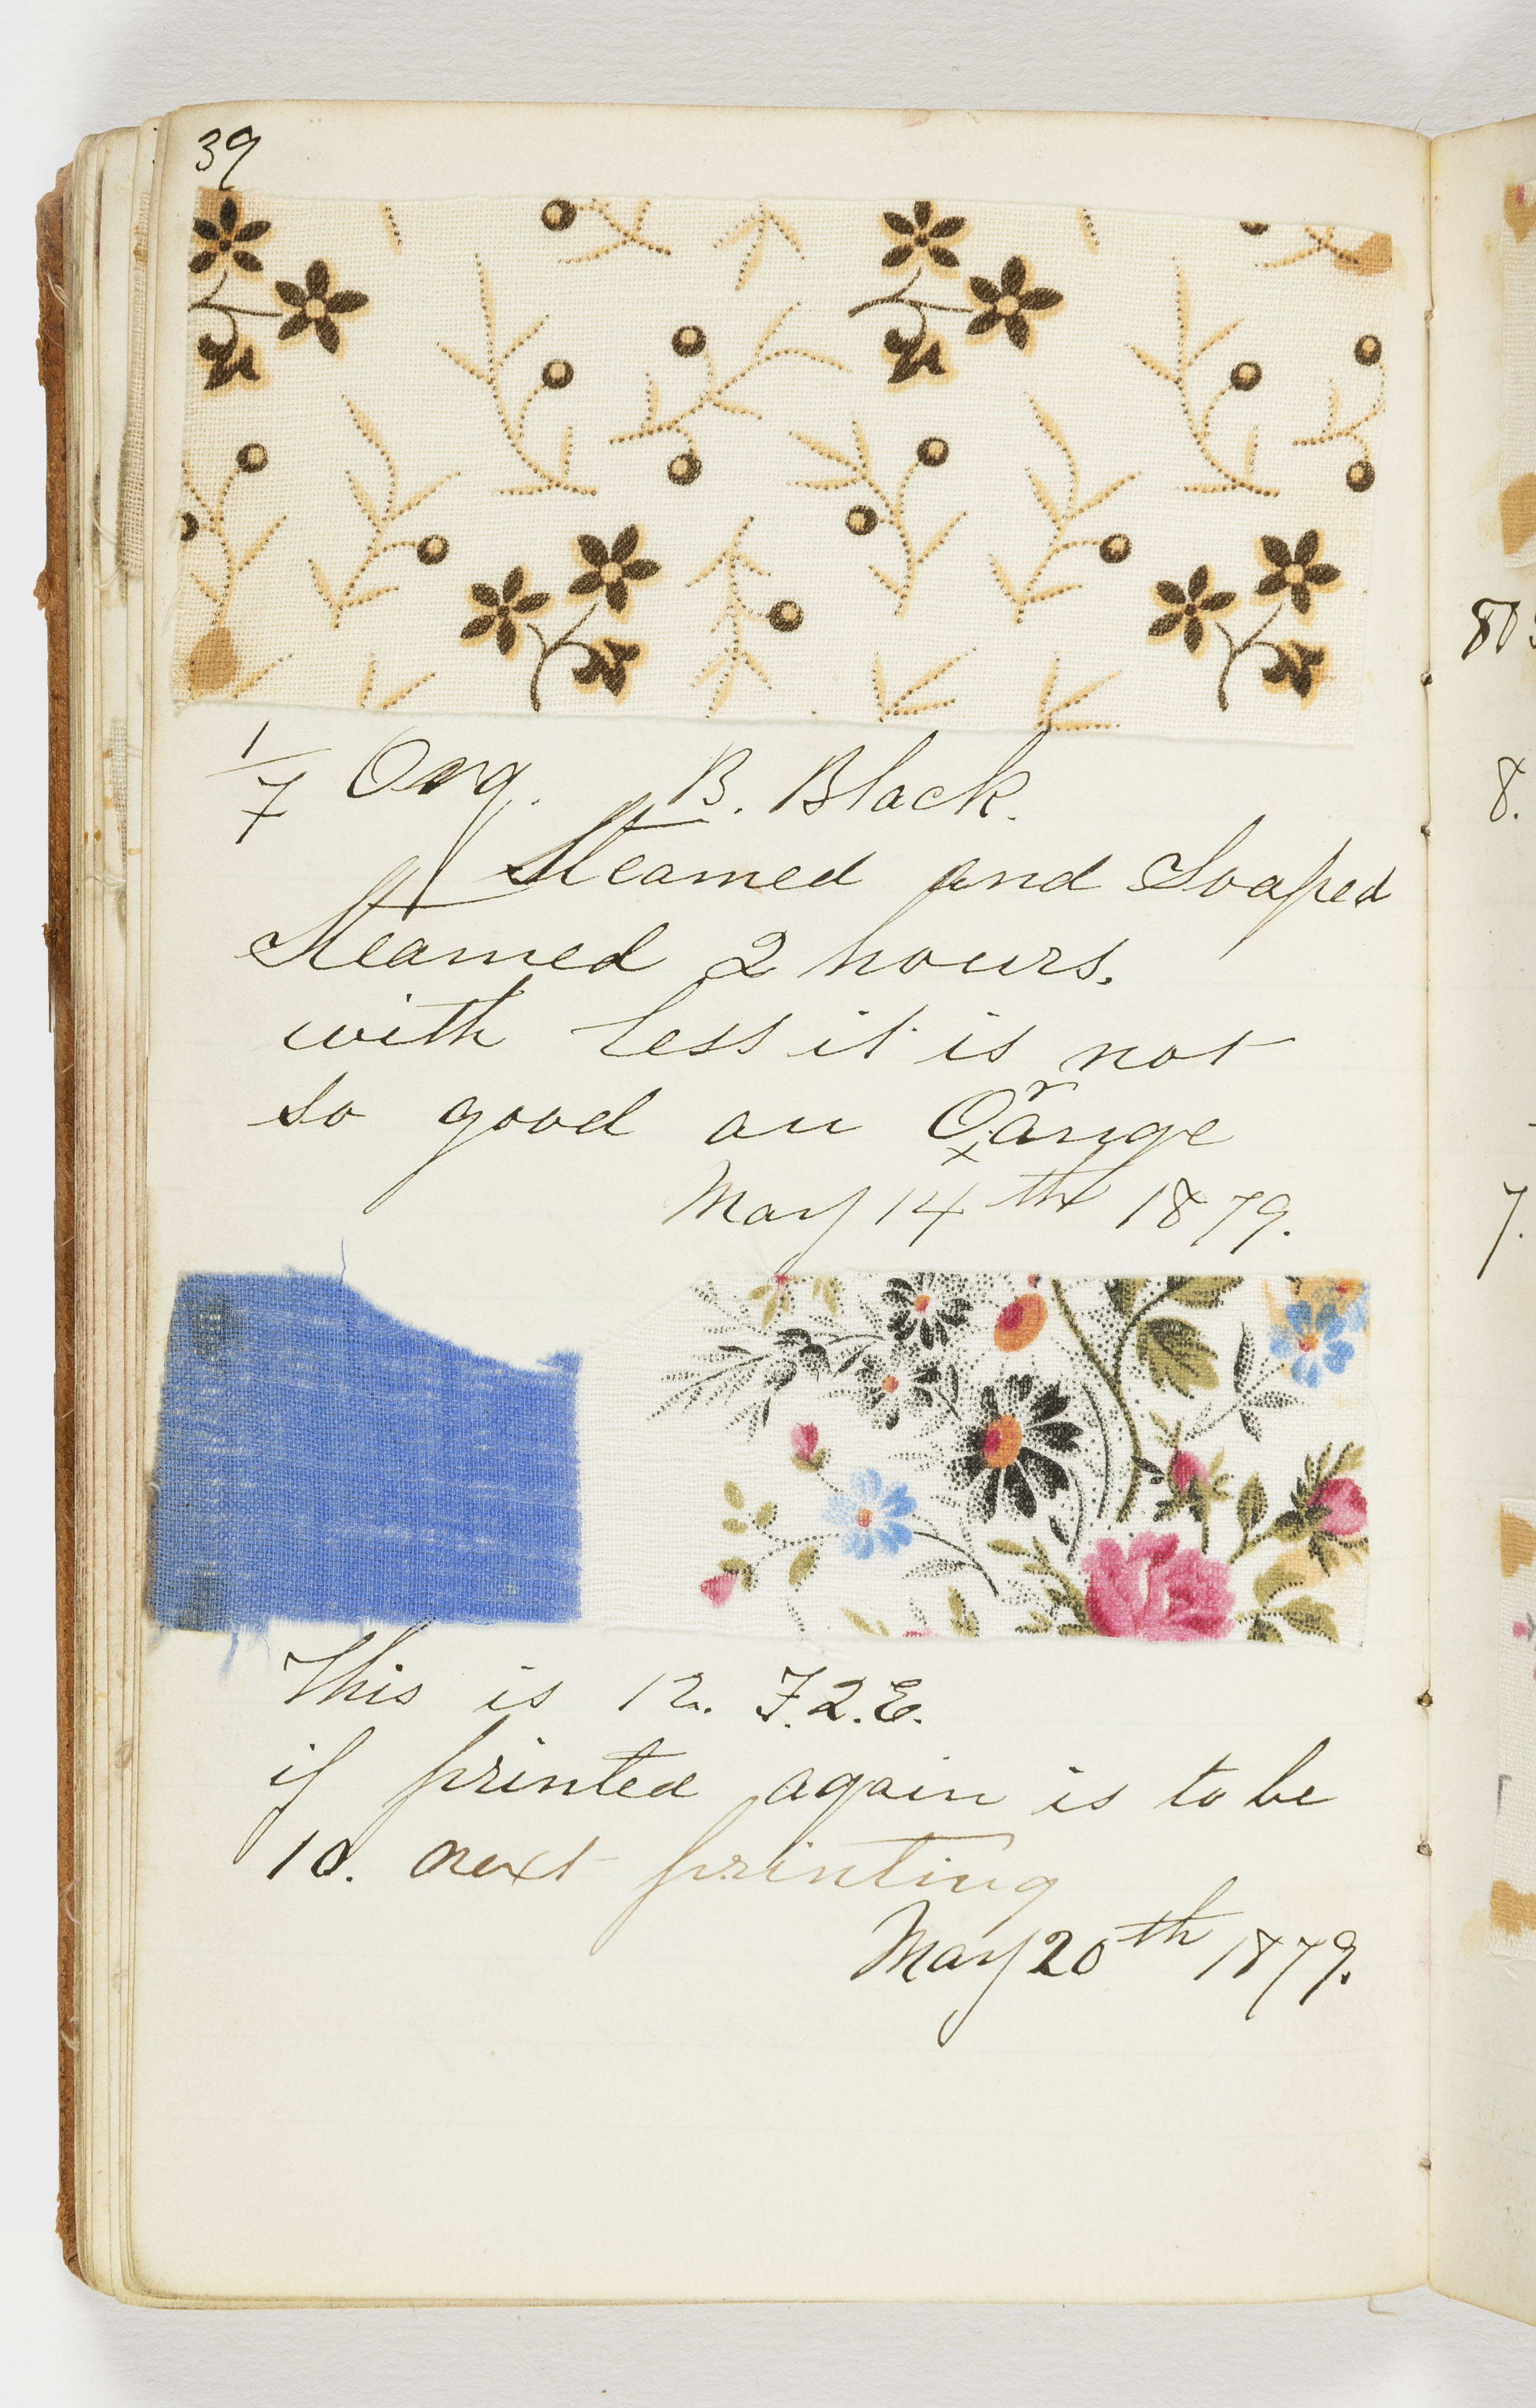 39
1/7 Org. B. Black.
Steamed and Soaped
Steamed 2 hours.
with less it is not
so good an Orange
May 14th 1879.
This is 12. F.2.E.
if printed again is to be
10. next printing
May 20th 1879.
8.
7.